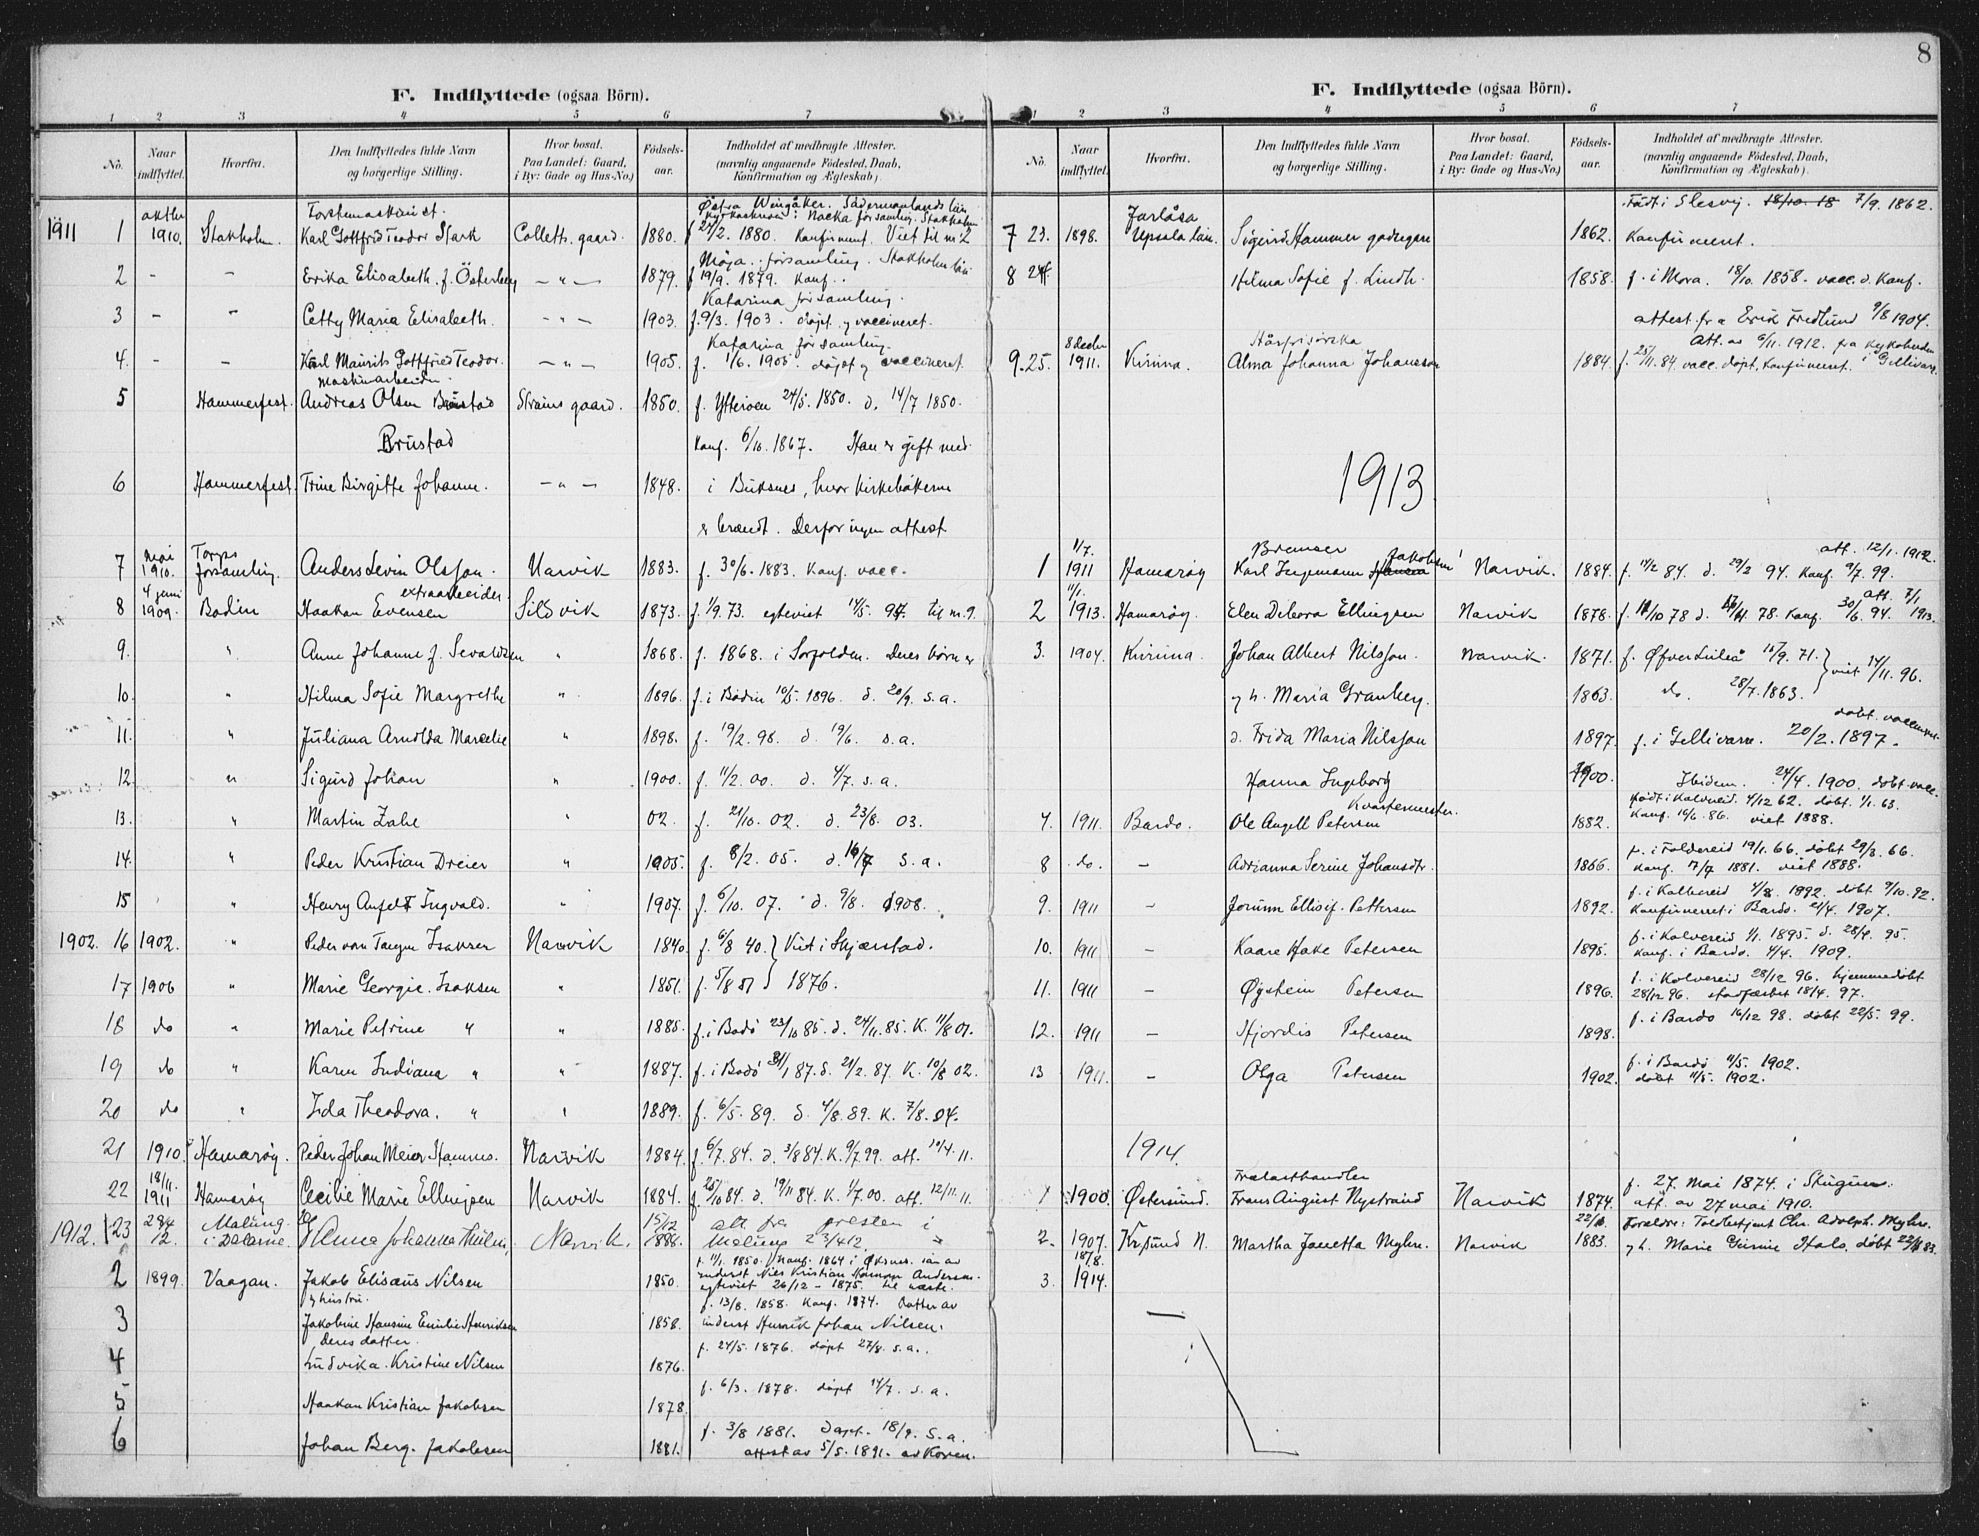 8
F. Indflyttede (ogsaa Börn).
1 2 3 4 5 6 7
No. Naar indflyttet. Hvorfra. Den Indflyttedes fulde Navn og borgerlige Stilling. Hvor bosat. Paa Landet: Gaard, i By: Gade og Hus-No.) Födsels-aar. Indholdet af medbragte Attester. (navnlig angaaende Födested, Daab, Konfirmation og Ægteskab).
1911 1 1910. Stokholm. Karl Gottfrid Teodor Stark Colleths gaard. 1880. Östra Wingåker. Södermanlands län
27/2. 1880. Konfirment. Viet til no 2
2 - - Erika Elisabeth. f. Österberg - " - 1879. Möja församling. Stokholm län
f 19/9. 1879. Konf.
3 - - Cetty Maria Elisabeth. - " - 1903. Katarina församling.
f. 9/3. 1903. døpt og vaccineret.
4. - - Karl Maurits Gottfried Teodor. - " - 1905. Katarina församling.
f. 1/6. 1905 døpt og vaccineret.
5 Hammerfest. Andreas Olsen Strøms gaard. 1850. f. Ytterøen 24/5. 1850. d. 14/7 1850.
Brustad Konf. 6/10. 1867. Han er gift med
6 Hammerfest. Trine Birgitte Johanne. - " - 1848. i Buksnes, hvor Kirkebøkerne
er brændt. Derfor ingen attest
7 mai 1910. Torps forsamling. Anders Levin Olsson. Narvik 1883. f. 30/6. 1883. Konf. vacc.
8 4 juni 1909. Bodin Haakan Evensen extraarbeider Sildvik 1873. f. 1/9. 73. egteviet 14/5. 94. til no. 9.
9. " Anne Johanne f. Sevaldsen " 1868. f. 1868. i Sørfolden. Deres børn er
10. " Hilma Sofie Margrethe " 1896. f. i Bodin 10/5. 1896. d. 20/9. s.a.
11. " Juliana Arnolda Marcelie " 1898. f. 19/2. 98. d. 19/6. s.a.
12. " Sigurd Johan " 1900. f. 11/2. 00. d. 4/7. s.a.
13. " Martin Zahl " 02. f. 21/10. 02. d. 23/8. 03.
14. " Peder Kristian Dreier " 1905. f. 8/2. 05. d. 16/7 s.a.
15 " Henry Anfelt Ingvald. " 1907. f. 6/10. 07. d. 9/8. 1908.
1902. 16 1902. " Peder von Tangen Isaksen Narvik 1840 f. 6/8 40. } Viet i Skjerstad.
17 1906 " Marie Georgie. Isaksen " 1851. f. 5/8 51 } 1876.
18 do " Marie Petrine " " 1885. f. i Bodö 23/10 85. d. 24/11. 85. K. 11/8 01.
19 do " Karen Indiana " " 1887. f. i Bodö 31/1 87. d. 21/2. 87. K. 10/8 02.
20 do " Ida Theodora. " " 1889. f. 6/5. 89. d. 4/8. 89. K. 7/8. 04.
21 1910. Hamarøy. Peder Johan Meier Hamnes. Narvik 1884. f. 6/7. 84. d. 3/8 84. K. 9/7. 99. att. 10/4. 11.
22 18/11. 1911 Hamarøy Cecilie Marie Ellingsen Narvik 1884. f. 25/10 84. d. 19/11 84. K. 1/7. 00. att. 12/11. 11.
1912. 23 Malung i Dalarne. Narvik. 15/12 1888. att. fra presten i Malung 2 3/4 12.
2 1899. Vaagan. Jakob Elisæus Nilsen 1850. f. 11/1. 1850. Konf. 1864 i Øksnes.
egteviet 26/12 - 1875. til næste.
3 og hustru. Jakobine Hansine Emilie Henriksen 1858. f. 13/8. 1858. Konf. 1874. Datter av
inderst Henrik Johan Nilsen.
4 deres datter. Ludvika. Kristine Nilsen 1876. f. 24/5. 1876. døpt 27/8. s.a.
5 Haakan Kristian Jakobsen 1878 f. 6/3. 1878. døpt 14/7. s.a.
6 Johan Berg. Jakobsen 1881. f. 3/8 1881. Døpt. 18/9. s.a.
attest av 5/5. 1891. av Koren.
F. Indflyttede (ogsaa Börn).
1 2 3 4 5 6 7
No. Naar indflyttet. Hvorfra. Den Indflyttedes fulde Navn og borgerlige Stilling. Hvor bosat. Paa Landet: Gaard, i By: Gade og Hus-No.) Födsels-aar. Indholdet af medbragte Attester. (navnlig angaaende Födested, Daab, Konfirmation og Ægteskab).
7 23. 1898. Jarlåsa Upsala län. Sigurd Hammer 1862. Født i Slesvig. 18/10. 18 7/9. 1862.
Konfirment.
8 24 Hilma Sofie f. Lindh. 1858. f. i Mora. 18/10. 1858. vacc. d. Konf.
attest fra Erik Fredlund 9/8 1904.
9. 25. 8 decbr 1911. Kiruna. Alma Johanna Johansson 1884. Att. av 6/11. 1912. fra
f. 25/11. 84. vacc. døpt, Konfirment. i Gellivare.
1913.
1 1/7. 1911 Hamarøy Bremser Karl Ingemann Hansen Jakobsen Narvik. 1884. att. 12/1. 1912.
f. 11/2 84. d. 29/2 94. Konf. 9/7. 99.
2 1/1. 1913. Hamarøy. Elen Debora Ellingsen Narvik 1878. f. 11/10 78 d. 78. Konf. 30/6. 94. att. 7/1 1913.
3. 1904. Kiruna. Johan Albert Nilsson. Narvik. 1871. f. Øfver Luleå 15/9. 71. } viet 14/11. 96.
og h. Maria Granberg. 1863. do. 28/7. 1863.
d. Frida Maria Nilsson 1897. f. i Gellivare. 20/2. 1897. døbt. vaccineret.
Hanna Ingeborg 1900. Ibidem. 24/4. 1900. døbt vacc.
7. 1911. Bardo. Kvartermester. Ole Angell Petersen 1882. født i Kolvereid. 4/12 62. døbt. 1/1. 63.
Konf. 10/6. 86. viet 1888.
8 do. - Adrianna Serine Johansdtr. 1866. f. i Foldereid 19/1. 66. døbt 29/3. 66.
Konf. 17/7 1881. viet 1888.
9. 1911 - Jorunn Ellisif. Pettersen 1892. f. i Kolvereid 4/8. 1892. døbt 9/10. 92.
Konfirmeret i Bardo. 21/4. 1907.
10. 1911 - Kaare Hake Petersen 1895. f. i Kolvereid 1/1. 1895. d. 28/4. 95.
Konf. i Bardo. 4/4. 1909.
11. 1911 - Øystein Petersen 1896. f. i Kolvereid 28/12 96. hjemmedøbt
28/12 96. stadfæstet 18/4. 97.
12. 1911 - Hjørdis Petersen 1898. f. i Bardo 16/12 98. døbt 22/5. 99.
13 1911. - Olga Petersen 1902. f. i Bardö 11/5. 1902.
døbt 11/5. 1902.
1914.
1 1900. Østersund. Frans August Nystrand Narvik 1874. f. 27. mai 1874. i Stugun.
att. av 27 mai 1910.
2. 1907. Kr.sund N. Martha Janetta Myhre. Narvik 22/10. 1883. Forældre: Toldbetjent Chr. Adolph. Myhre.
og h. Marie Hals.
3. 18/8. 1914.